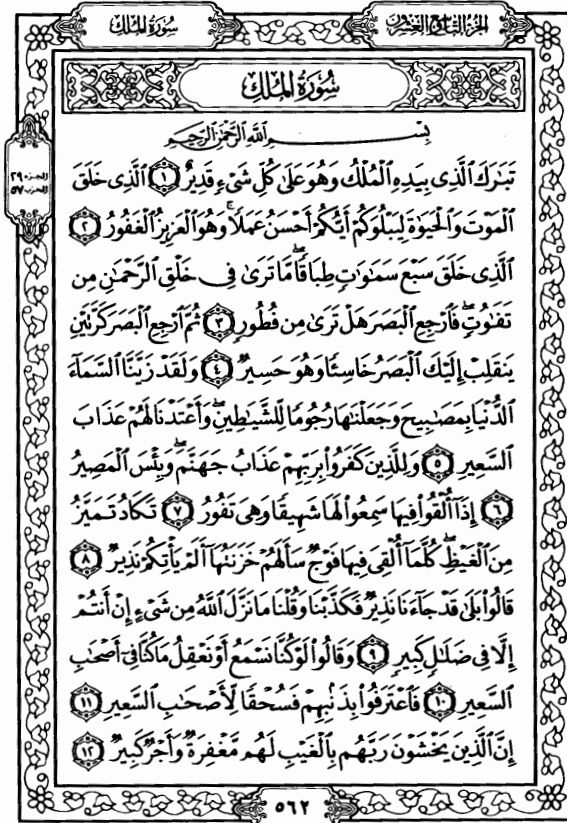 الجزء التاسع والعشرون
سُورَةُ المُلْكِ
الجزء ٢٩
الحزب ٥٧
سُورَةُ المُلْكِ
بِسْمِ اللَّهِ الرَّحْمَٰنِ الرَّحِيمِ
تَبَٰرَكَ ٱلَّذِى بِيَدِهِ ٱلْمُلْكُ وَهُوَ عَلَىٰ كُلِّ شَىْءٍ قَدِيرٌ ١ ٱلَّذِى خَلَقَ
ٱلْمَوْتَ وَٱلْحَيَوٰةَ لِيَبْلُوَكُمْ أَيُّكُمْ أَحْسَنُ عَمَلًا ۚ وَهُوَ ٱلْعَزِيزُ ٱلْغَفُورُ ٢
ٱلَّذِى خَلَقَ سَبْعَ سَمَٰوَٰتٍ طِبَاقًا ۖ مَّا تَرَىٰ فِى خَلْقِ ٱلرَّحْمَٰنِ مِن
تَفَٰوُتٍ ۖ فَٱرْجِعِ ٱلْبَصَرَ هَلْ تَرَىٰ مِن فُطُورٍ ٣ ثُمَّ ٱرْجِعِ ٱلْبَصَرَ كَرَّتَيْنِ
يَنقَلِبْ إِلَيْكَ ٱلْبَصَرُ خَاسِئًا وَهُوَ حَسِيرٌ ٤ وَلَقَدْ زَيَّنَّا ٱلسَّمَآءَ
ٱلدُّنْيَا بِمَصَٰبِيحَ وَجَعَلْنَٰهَا رُجُومًا لِّلشَّيَٰطِينِ ۖ وَأَعْتَدْنَا لَهُمْ عَذَابَ
ٱلسَّعِيرِ ٥ وَلِلَّذِينَ كَفَرُوا۟ بِرَبِّهِمْ عَذَابُ جَهَنَّمَ ۖ وَبِئْسَ ٱلْمَصِيرُ
٦ إِذَآ أُلْقُوا۟ فِيهَا سَمِعُوا۟ لَهَا شَهِيقًا وَهِىَ تَفُورُ ٧ تَكَادُ تَمَيَّزُ
مِنَ ٱلْغَيْظِ ۖ كُلَّمَآ أُلْقِىَ فِيهَا فَوْجٌ سَأَلَهُمْ خَزَنَتُهَآ أَلَمْ يَأْتِكُمْ نَذِيرٌ ٨
قَالُوا۟ بَلَىٰ قَدْ جَآءَنَا نَذِيرٌ فَكَذَّبْنَا وَقُلْنَا مَا نَزَّلَ ٱللَّهُ مِن شَىْءٍ إِنْ أَنتُمْ
إِلَّا فِى ضَلَٰلٍ كَبِيرٍ ٩ وَقَالُوا۟ لَوْ كُنَّا نَسْمَعُ أَوْ نَعْقِلُ مَا كُنَّا فِىٓ أَصْحَٰبِ
ٱلسَّعِيرِ ١٠ فَٱعْتَرَفُوا۟ بِذَنۢبِهِمْ فَسُحْقًا لِّأَصْحَٰبِ ٱلسَّعِيرِ ١١
إِنَّ ٱلَّذِينَ يَخْشَوْنَ رَبَّهُم بِٱلْغَيْبِ لَهُم مَّغْفِرَةٌ وَأَجْرٌ كَبِيرٌ ١٢
٥٦٢